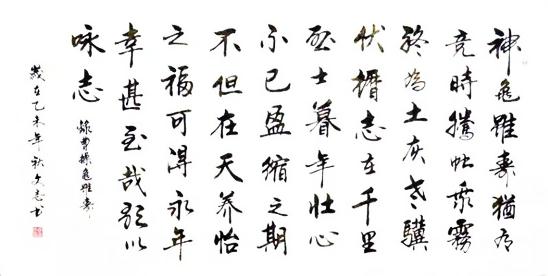 神龜雖壽猶有
竟時騰蛇乘霧
終為土灰老驥
伏櫪志在千里
烈士暮年壯心
不已盈縮之期
不但在天養怡
之福可得永年
幸甚至哉歌以
咏志
錄曹操龜雖壽
歲在乙未年秋文志書